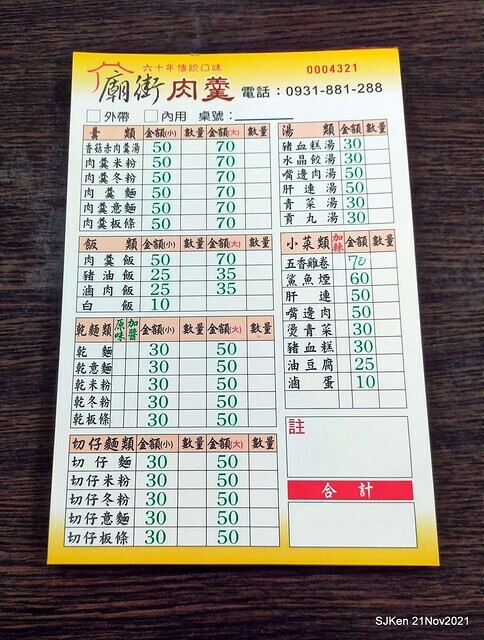 六十年傳統口味
0004321
廟街肉羹 電話：0931-881-288
外帶 內用 桌號：
羹類 金額(小) 數量 金額(大) 數量
香菇赤肉羹湯 50 70
肉羹米粉 50 70
肉羹冬粉 50 70
肉羹麵 50 70
肉羹意麵 50 70
肉羹板條 50 70
飯類 金額(小) 數量 金額(大) 數量
肉羹飯 50 70
豬油飯 25 35
滷肉飯 25 35
白飯 10
乾麵類 原味 加醬 金額(小) 數量 金額(大) 數量
乾麵 30 50
乾意麵 30 50
乾米粉 30 50
乾冬粉 30 50
乾板條 30 50
切仔麵類 金額(小) 數量 金額(大) 數量
切仔麵 30 50
切仔米粉 30 50
切仔冬粉 30 50
切仔意麵 30 50
切仔板條 30 50
湯類 金額 數量
豬血糕湯 30
水晶餃湯 30
嘴邊肉湯 50
肝連湯 50
青菜湯 30
貢丸湯 30
小菜類 加辣 金額 數量
五香雞卷 70
鯊魚煙 60
肝連 50
嘴邊肉 50
燙青菜 30
豬血糕 30
油豆腐 25
滷蛋 10
註
合計
SJKen 21Nov2021